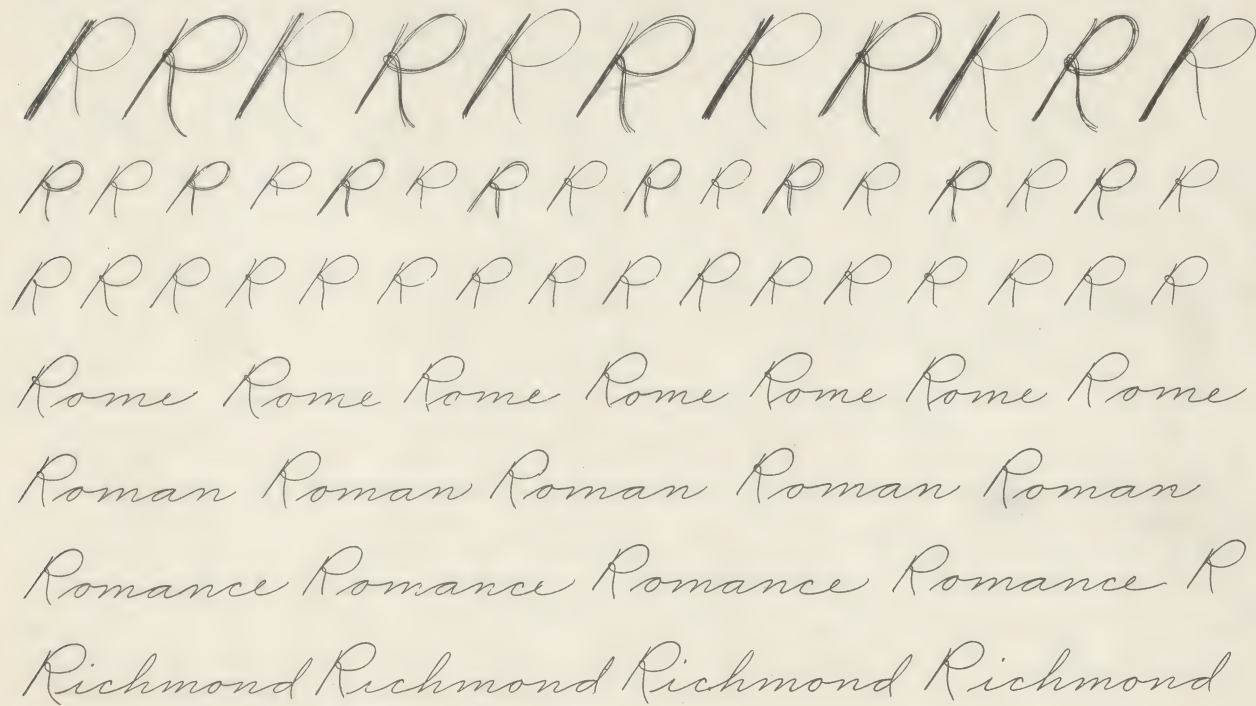 R R R R R R R R R R R
R R R R R R R R R R R R R R R R
R R R R R R R R R R R R R R R R
Rome Rome Rome Rome Rome Rome Rome
Roman Roman Roman Roman Roman
Romance Romance Romance Romance R
Richmond Richmond Richmond Richmond